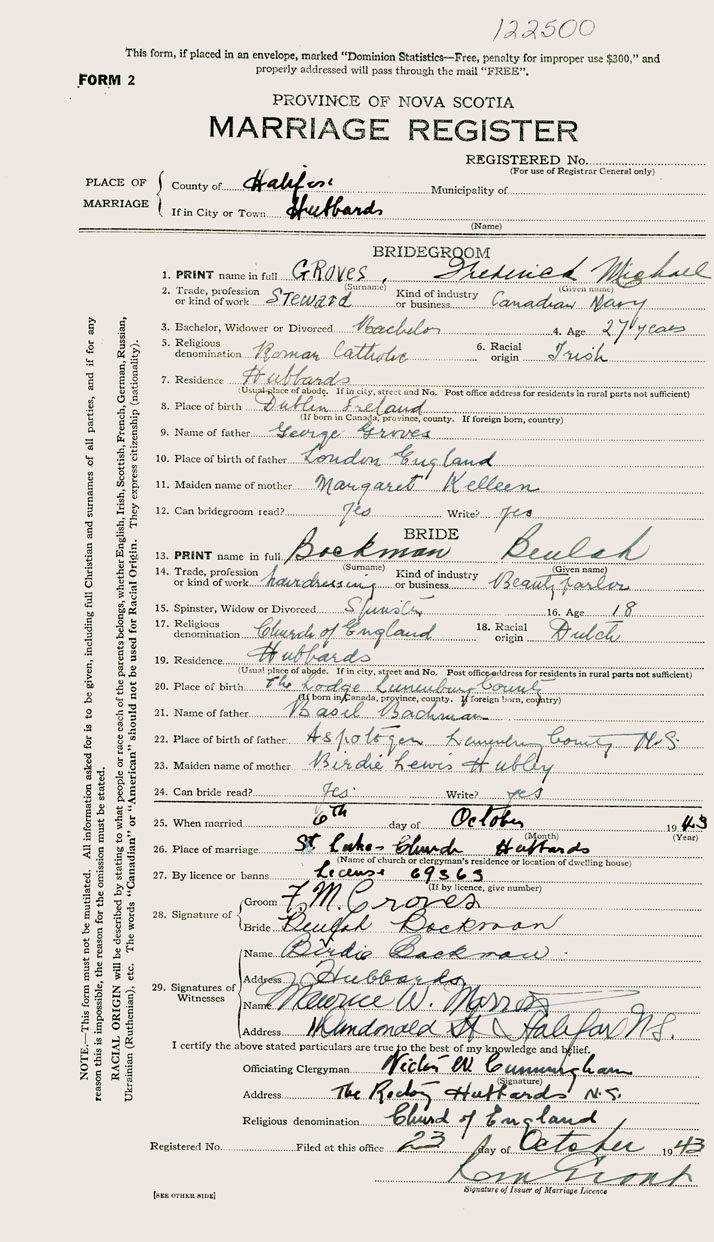 122500
This form, if placed in an envelope, marked "Dominion Statistics—Free, penalty for improper use $300," and
properly addressed will pass through the mail "FREE".
FORM 2
PROVINCE OF NOVA SCOTIA
MARRIAGE REGISTER
REGISTERED No.
(For use of Registrar General only)
PLACE OF MARRIAGE
County of Halifax Municipality of
If in City or Town Hubbards
(Name)
BRIDEGROOM
1. PRINT name in full GROVES, Frederick Michael
(Surname) (Given name)
2. Trade, profession or kind of work Steward Kind of industry or business Canadian Navy
3. Bachelor, Widower or Divorced Bachelor 4. Age 27 years
5. Religious denomination Roman Catholic 6. Racial origin Irish
7. Residence Hubbards
(Usual place of abode. If in city, street and No. Post office address for residents in rural parts not sufficient)
8. Place of birth Dublin Ireland
(If born in Canada, province, county. If foreign born, country)
9. Name of father George Groves
10. Place of birth of father London England
11. Maiden name of mother Margaret Kelleen
12. Can bridegroom read? yes Write? yes
BRIDE
13. PRINT name in full Backman Beulah
(Surname) (Given name)
14. Trade, profession or kind of work hairdressing Kind of industry or business Beauty parlor
15. Spinster, Widow or Divorced Spinster 16. Age 18
17. Religious denomination Church of England 18. Racial origin Dutch
19. Residence Hubbards
(Usual place of abode. If in city, street and No. Post office address for residents in rural parts not sufficient)
20. Place of birth The Lodge Lunenburg County
(If born in Canada, province, county. If foreign born, country)
21. Name of father Basil Backman
22. Place of birth of father Aspotogan Lunenburg County N.S.
23. Maiden name of mother Birdie Lewis Hubley
24. Can bride read? yes Write? yes
25. When married 6th day of October 1943
(Month) (Year)
26. Place of marriage St Lukes Church Hubbards
(Name of church or clergyman's residence or location of dwelling house)
27. By licence or banns License 69363
(If by licence, give number)
28. Signature of
Groom F. M. Groves
Bride Beulah Backman
29. Signatures of Witnesses
Name Birdie Backman
Address Hubbards
Name Maurice W.
Address St Halifax N.S.
I certify the above stated particulars are true to the best of my knowledge and belief.
Officiating Clergyman Victor W. Cunningham
(Signature)
Address The Rectory Hubbards N.S.
Religious denomination Church of England
Registered No. Filed at this office 23 day of October 1943
Signature of Issuer of Marriage Licence
[SEE OTHER SIDE]
NOTE.—This form must not be mutilated. All information asked for is to be given, including full Christian and surnames of all parties, and if for any
reason this is impossible, the reason for the omission must be stated.
RACIAL ORIGIN will be described by stating to what people or race each of the parents belongs, whether English, Irish, Scottish, French, German, Russian,
Ukrainian (Ruthenian), etc. The words "Canadian" or "American" should not be used for Racial Origin. They express citizenship (nationality).